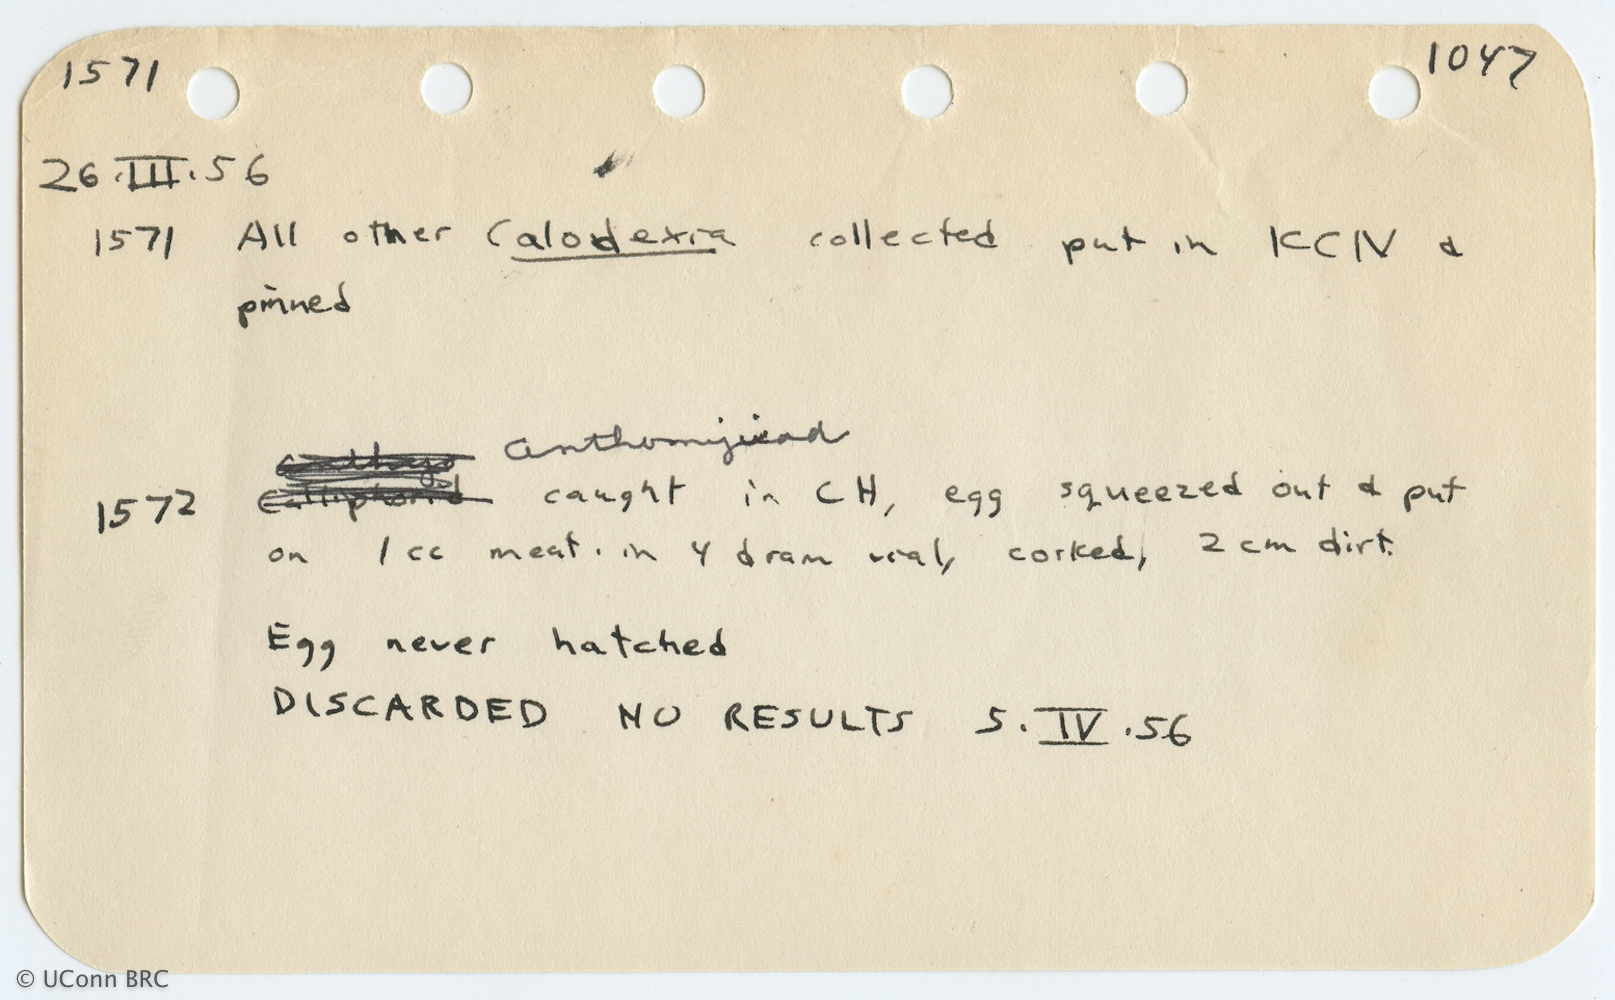 1571 1047
26.III.56
1571 All other Calodexia collected put in KCN &
pinned
anthomyiid
1572 calliphorid caught in CH, egg squeezed out & put
on 1 cc meat. in 4 dram vial, corked, 2 cm dirt.
Egg never hatched
DISCARDED NO RESULTS 5.IV.56
© UConn BRC